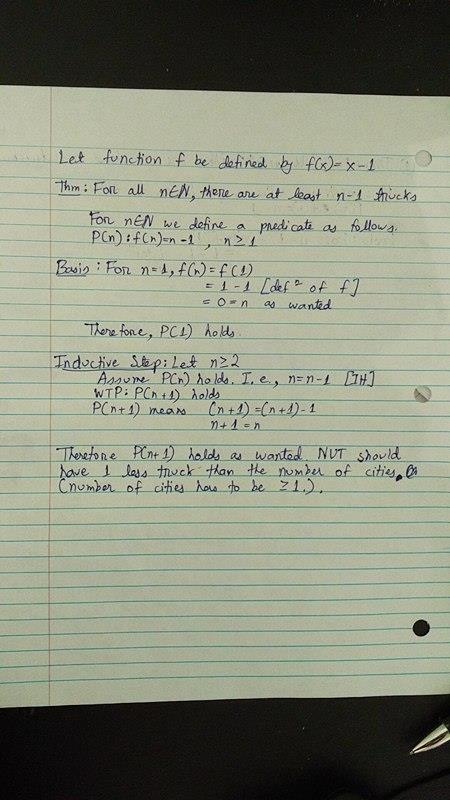 Let function f be defined by f(x)= x-1
Thm: For all n∈N, there are at least n-1 trucks
For n∈N we define a predicate as follows.
P(n): f(n)=n-1 , n≥1
Basis: For n=1, f(n)=f(1)
= 1-1 [defⁿ of f]
= 0=n as wanted
Therefore, P(1) holds.
Inductive Step: Let n≥2
Assume P(n) holds. I.e., n=n-1 [IH]
WTP: P(n+1) holds
P(n+1) means (n+1)=(n+1)-1
n+1=n
Therefore P(n+1) holds as wanted. NUT should
have 1 less truck than the number of cities.
(number of cities has to be ≥1.).